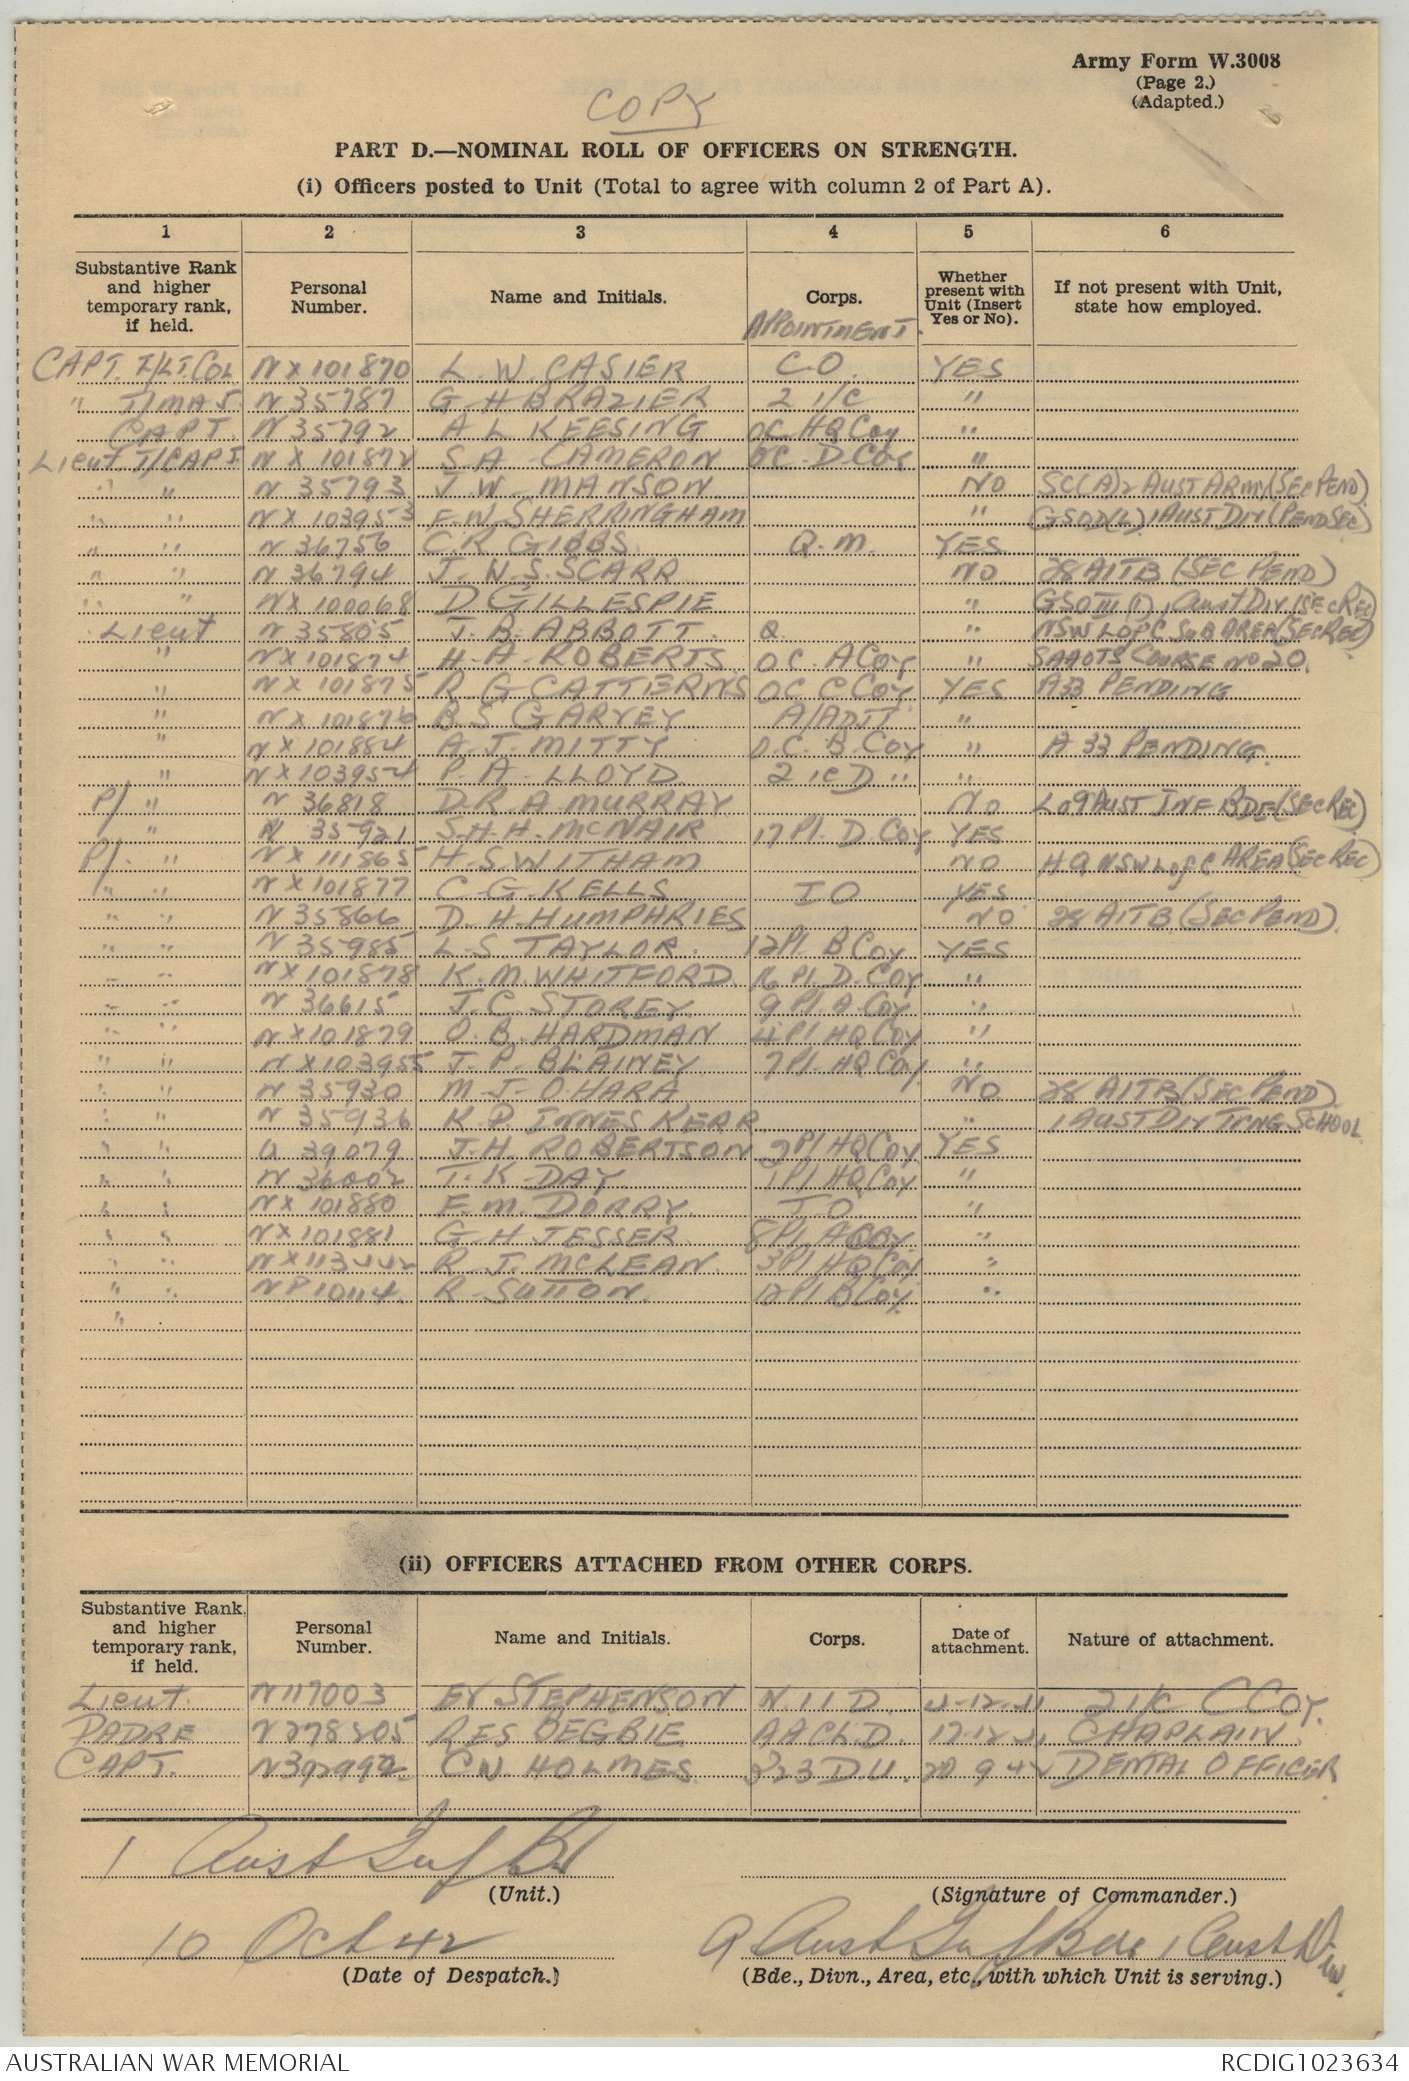 Army Form W.3008
(Page 2.)
(Adapted.)
COPY
PART D.—NOMINAL ROLL OF OFFICERS ON STRENGTH.
(i) Officers posted to Unit (Total to agree with column 2 of Part A).
1 2 3 4 5 6
Substantive Rank and higher temporary rank, if held. Personal Number. Name and Initials. Corps. Whether present with Unit (Insert Yes or No). If not present with Unit, state how employed.
APPOINTMENT.
CAPT. T/LT.COL NX101870 L. W. CASIER C.O. YES
" T/MAJ. N35787 G H BRAZIER 2 i/c "
CAPT. N35792 A L KEESING OC HQ Coy "
Lieut T/CAPT NX 101872 S. A. CAMERON OC. D. Coy "
" " N 35793 J. W. MANSON NO SC(A)2 AUST ARMY (SEC PEND)
" " NX 103953 F. W. SHERRINGHAM " GSO (L) 1 AUST DIV (PEND SEC)
" " N 36756 C. R GIBBS Q.M. YES
" " N 36794 J. W. S. SCARR NO 28 AITB (SEC PEND)
" " NX 100068 D GILLESPIE " GSO III (1), Aust Div (SEC REC)
Lieut N 35805 J. B. ABBOTT. Q. " NSW L OF C SUB AREA (SEC REC)
" NX101874 H. A. ROBERTS OC. A Coy " SAAOTS COURSE NO 20.
" NX 101875 R. G CATTERNS OC C Coy YES A33 PENDING
" NX 101876 B. S GARVEY A/ADJT "
" NX 101884 A. J. MITTY O.C. B. Coy " A 33 PENDING.
" NX103954 P. A. LLOYD 2 ic D " "
P/ " N 36818 D. R. A. MURRAY NO LO 9 AUST INF BDE (SEC REC)
" N 35921 S. H. H. McNAIR 17 Pl. D. Coy YES
P/. " NX 111865 H. S. WITHAM NO HQ NSW L of C AREA (SEC REC)
" " NX101877 C. G. KELLS I O YES
" " N 35866 D. H. HUMPHRIES NO 28 AITB (SEC PEND)
" " N 35985 L. S. TAYLOR. 12 Pl. B Coy YES
" " NX101878 K. M. WHITFORD 16 Pl. D. Coy "
" " N 36615 J. C. STOREY 9 Pl. A. Coy "
" " NX101879 O. B. HARDMAN 4 Pl HQ Coy "
" " NX103955 J. P. BLAINEY 7 Pl. HQ Coy "
" " N 35930 M. J. O'HARA NO 28 AITB (SEC PEND)
" " N 35936 K. P. INNES KERR " 1 AUST DIV TRNG SCHOOL
" " Q 39079 J. H. ROBERTSON 2 Pl HQ Coy YES
" " N 36002 T. K. DAY 1 Pl HQ Coy "
" " NX 101880 F. M. DORRY. T O "
" " NX101881 G. H JESSER 8 Pl A Coy "
" " NX113442 R. J. McLEAN. 3 Pl HQ Coy "
" " NP10114. R. SUTTON. 12 Pl B Coy "
"
(ii) OFFICERS ATTACHED FROM OTHER CORPS.
Substantive Rank and higher temporary rank, if held. Personal Number. Name and Initials. Corps. Date of attachment. Nature of attachment.
Lieut. N117003 EV STEPHENSON 2 i/c C Coy.
PADRE N278205 RES BEGBIE CHAPLAIN
CAPT. CW. HOLMES D U. 20 9 42 DENTAL OFFICER
1 Aust Inf Bn
(Unit.) (Signature of Commander.)
10 Oct 42 9 Aust Inf Bde 1 Aust Div.
(Date of Despatch.) (Bde., Divn., Area, etc., with which Unit is serving.)
AUSTRALIAN WAR MEMORIAL RCDIG1023634